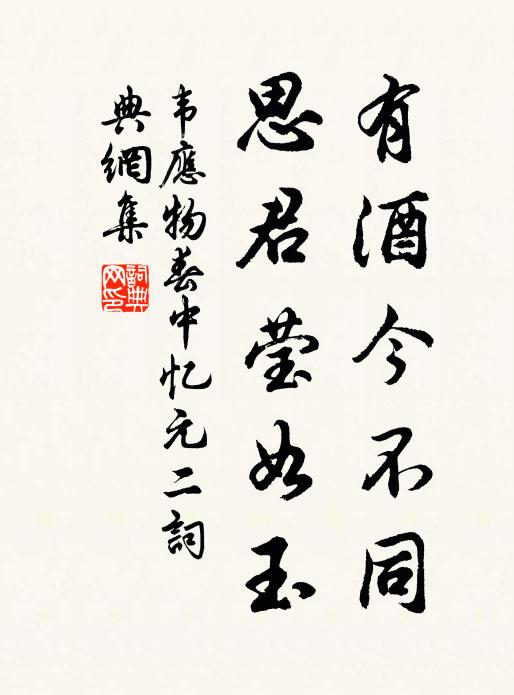 有酒今不同
思君莹如玉
韦應物春中忆元二詞
典網集
詞典网印